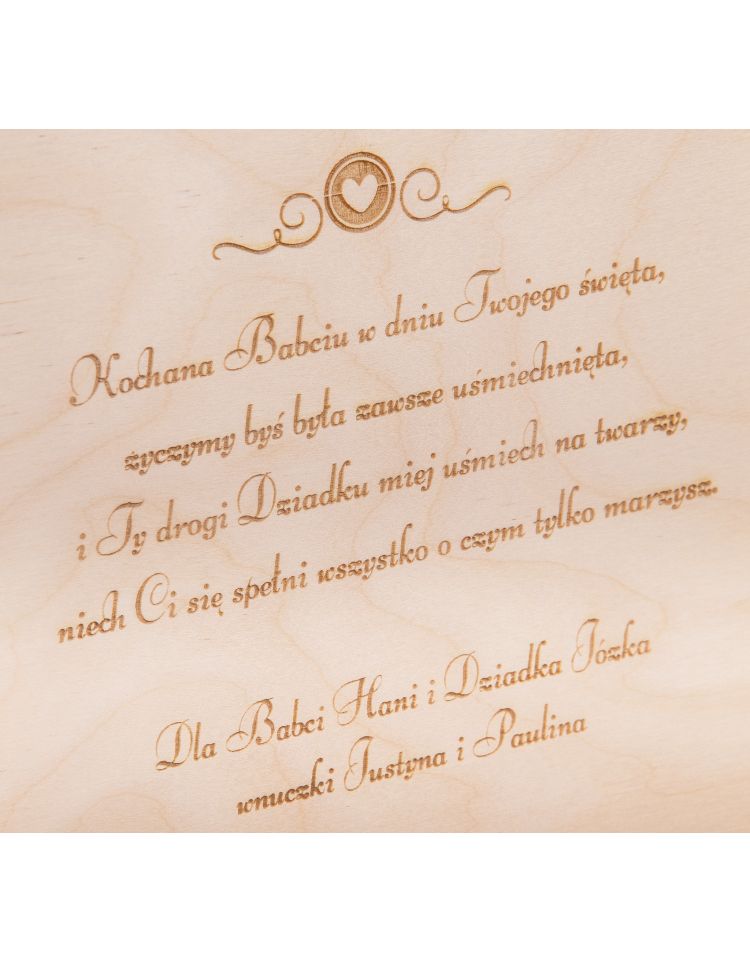 Kochana Babciu w dniu Twojego święta,
życzymy byś była zawsze uśmiechnięta,
i Ty drogi Dziadku miej uśmiech na twarzy,
niech Ci się spełni wszystko o czym tylko marzysz.
Dla Babci Hani i Dziadka Józka
wnuczki Justyna i Paulina